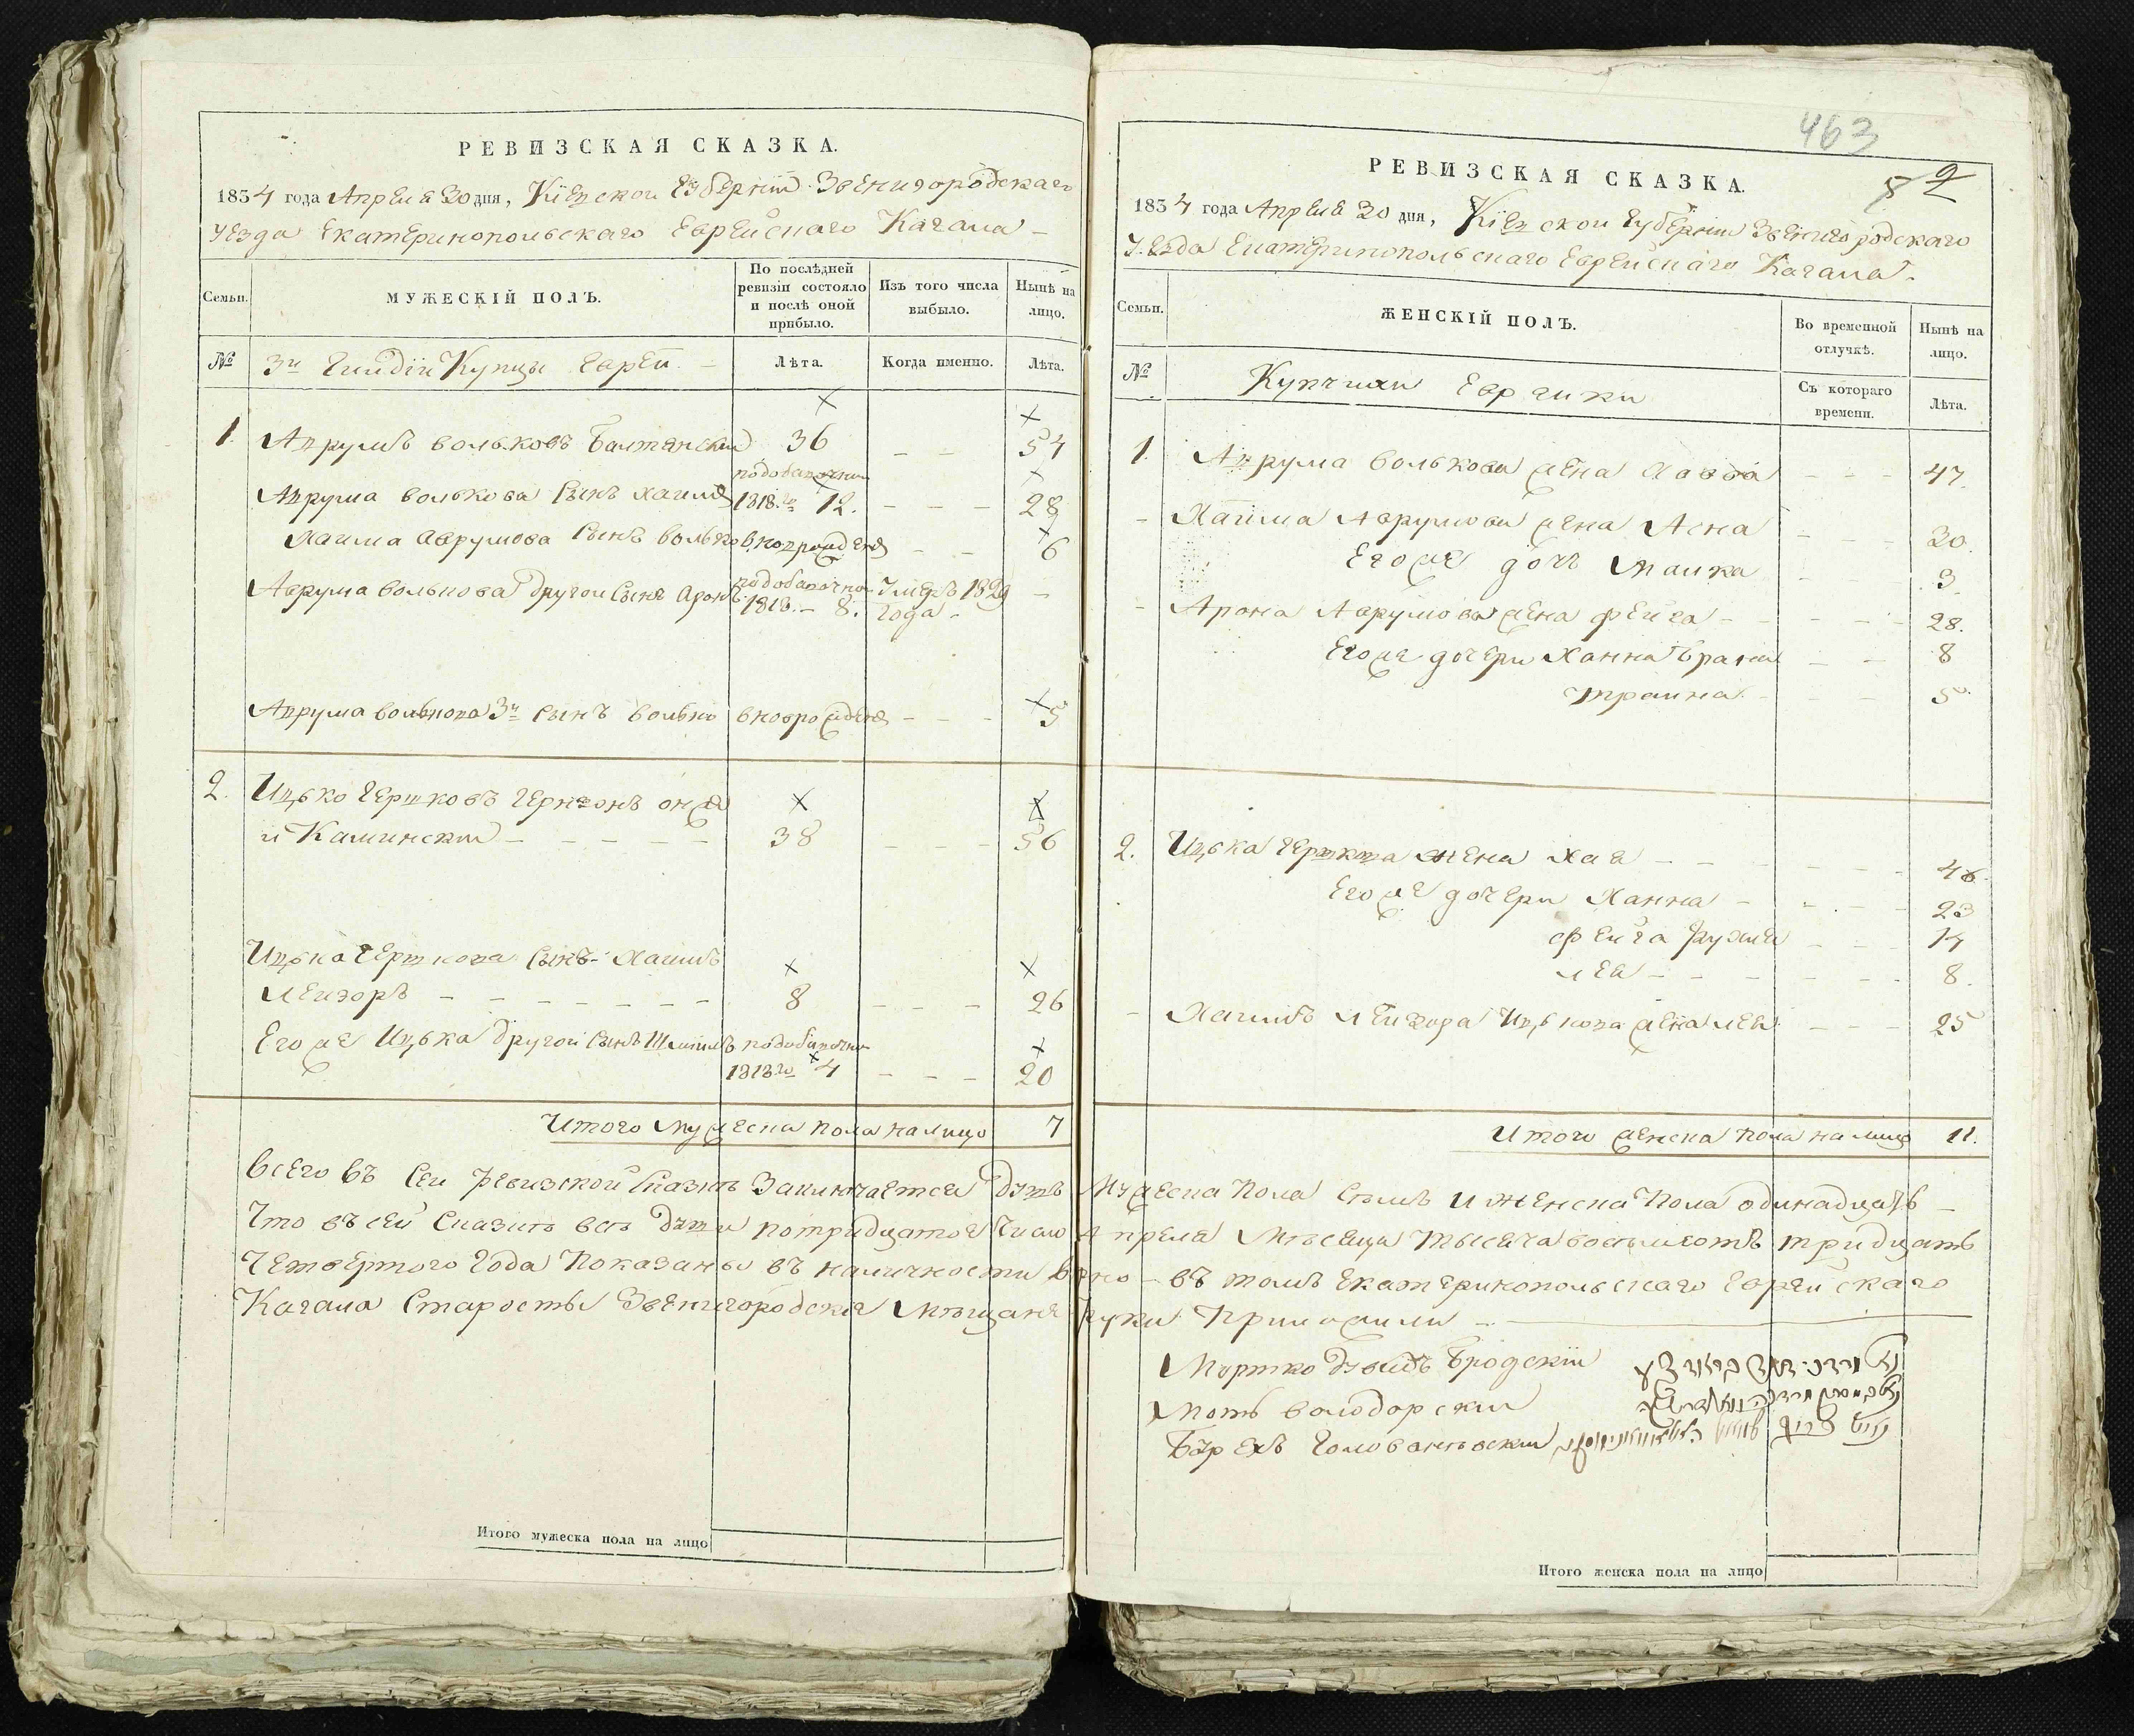 РЕВИЗСКАЯ СКАЗКА.
1834 года Апреля 30 дня, Кіевской Губерніи Звенигородскаго
уезда Екатеринопольскаго Еврейскаго Кагала –
Семьи.
МУЖЕСКІЙ ПОЛЪ.
По послѣдней ревизіи состояло и послѣ оной прибыло.
Изъ того числа выбыло.
Нынѣ на лицо.
№
3й Гилдіи Купцы Евреи –
Лѣта.
Когда именно.
Лѣта.
1. Аврумъ Вольковъ Балтянский 36 – – 54
по добавочной
Аврума Волькова Сынъ Хаимъ 1818го 12. – – – 28
Хаима Аврумова Сынъ Волько вновьрожденъ – – 6
Аврума Волькова другой Сынъ Аронъ по добавочной 1818. – 8. Умеръ 1829 года – –
Аврума Волькова 3й Сынъ Волько вноврожденъ – – – 5
2. Ицько Гершковъ онже
и Каминский – – – – – 38 – – – 56
Ицька Гершкова Сынъ Хаимъ
Лейзоръ – – – – – – – 8 – – – 26
Егоже Ицька другой Сынъ по добавочной
1818го 4 – – – 20
Итого мужеска пола налицо 7
РЕВИЗСКАЯ СКАЗКА.
463
1834 года Апреля 30 дня, Кіевской Губерніи Звенигородскаго
Уезда Екатеринопольскаго Еврейскаго Кагала.
Семьи.
ЖЕНСКІЙ ПОЛЪ.
Во временной отлучкѣ.
Нынѣ на лицо.
№
Купчихи Еврейки
Съ котораго времени.
Лѣта.
1. Аврума Волькова жена – – – 47.
– Хаима Аврумова жена Асна – – – 20.
Егоже дочь Малка – – 3.
– Арона Аврумова жена Фейга – – – – 28.
Егоже дочери Ханна – – 8
Траина – – – 5
2. Ицька Гершкова жена Хая – – – – – 46.
Егоже дочери Ханна – – – – 23
Фейга Рухля – – 14
Лея – – – – – – – 8.
– Хаимъ Лейзора Ицькова жена Лея – – – 25
Итого женска пола налицо 11.
Всего въ сей ревизской сказкѣ Заключается душъ Мужеска Пола Семь и женска Пола одинадцать –
Что въ сей Сказкѣ всѣ души потридцатое Число Апреля Мѣсяца тысяча восемьсотъ тридцать
Четвертого Года Показаны въ наличности вѣрно – въ томъ Екатеринопольскаго Еврейскаго
Кагала Старосты Звенигородские Мѣщане руки Приложили –
Мортко Бродскій
Володарский
Борехъ Голованевский
Итого мужеска пола на лицо
Итого женска пола на лицо